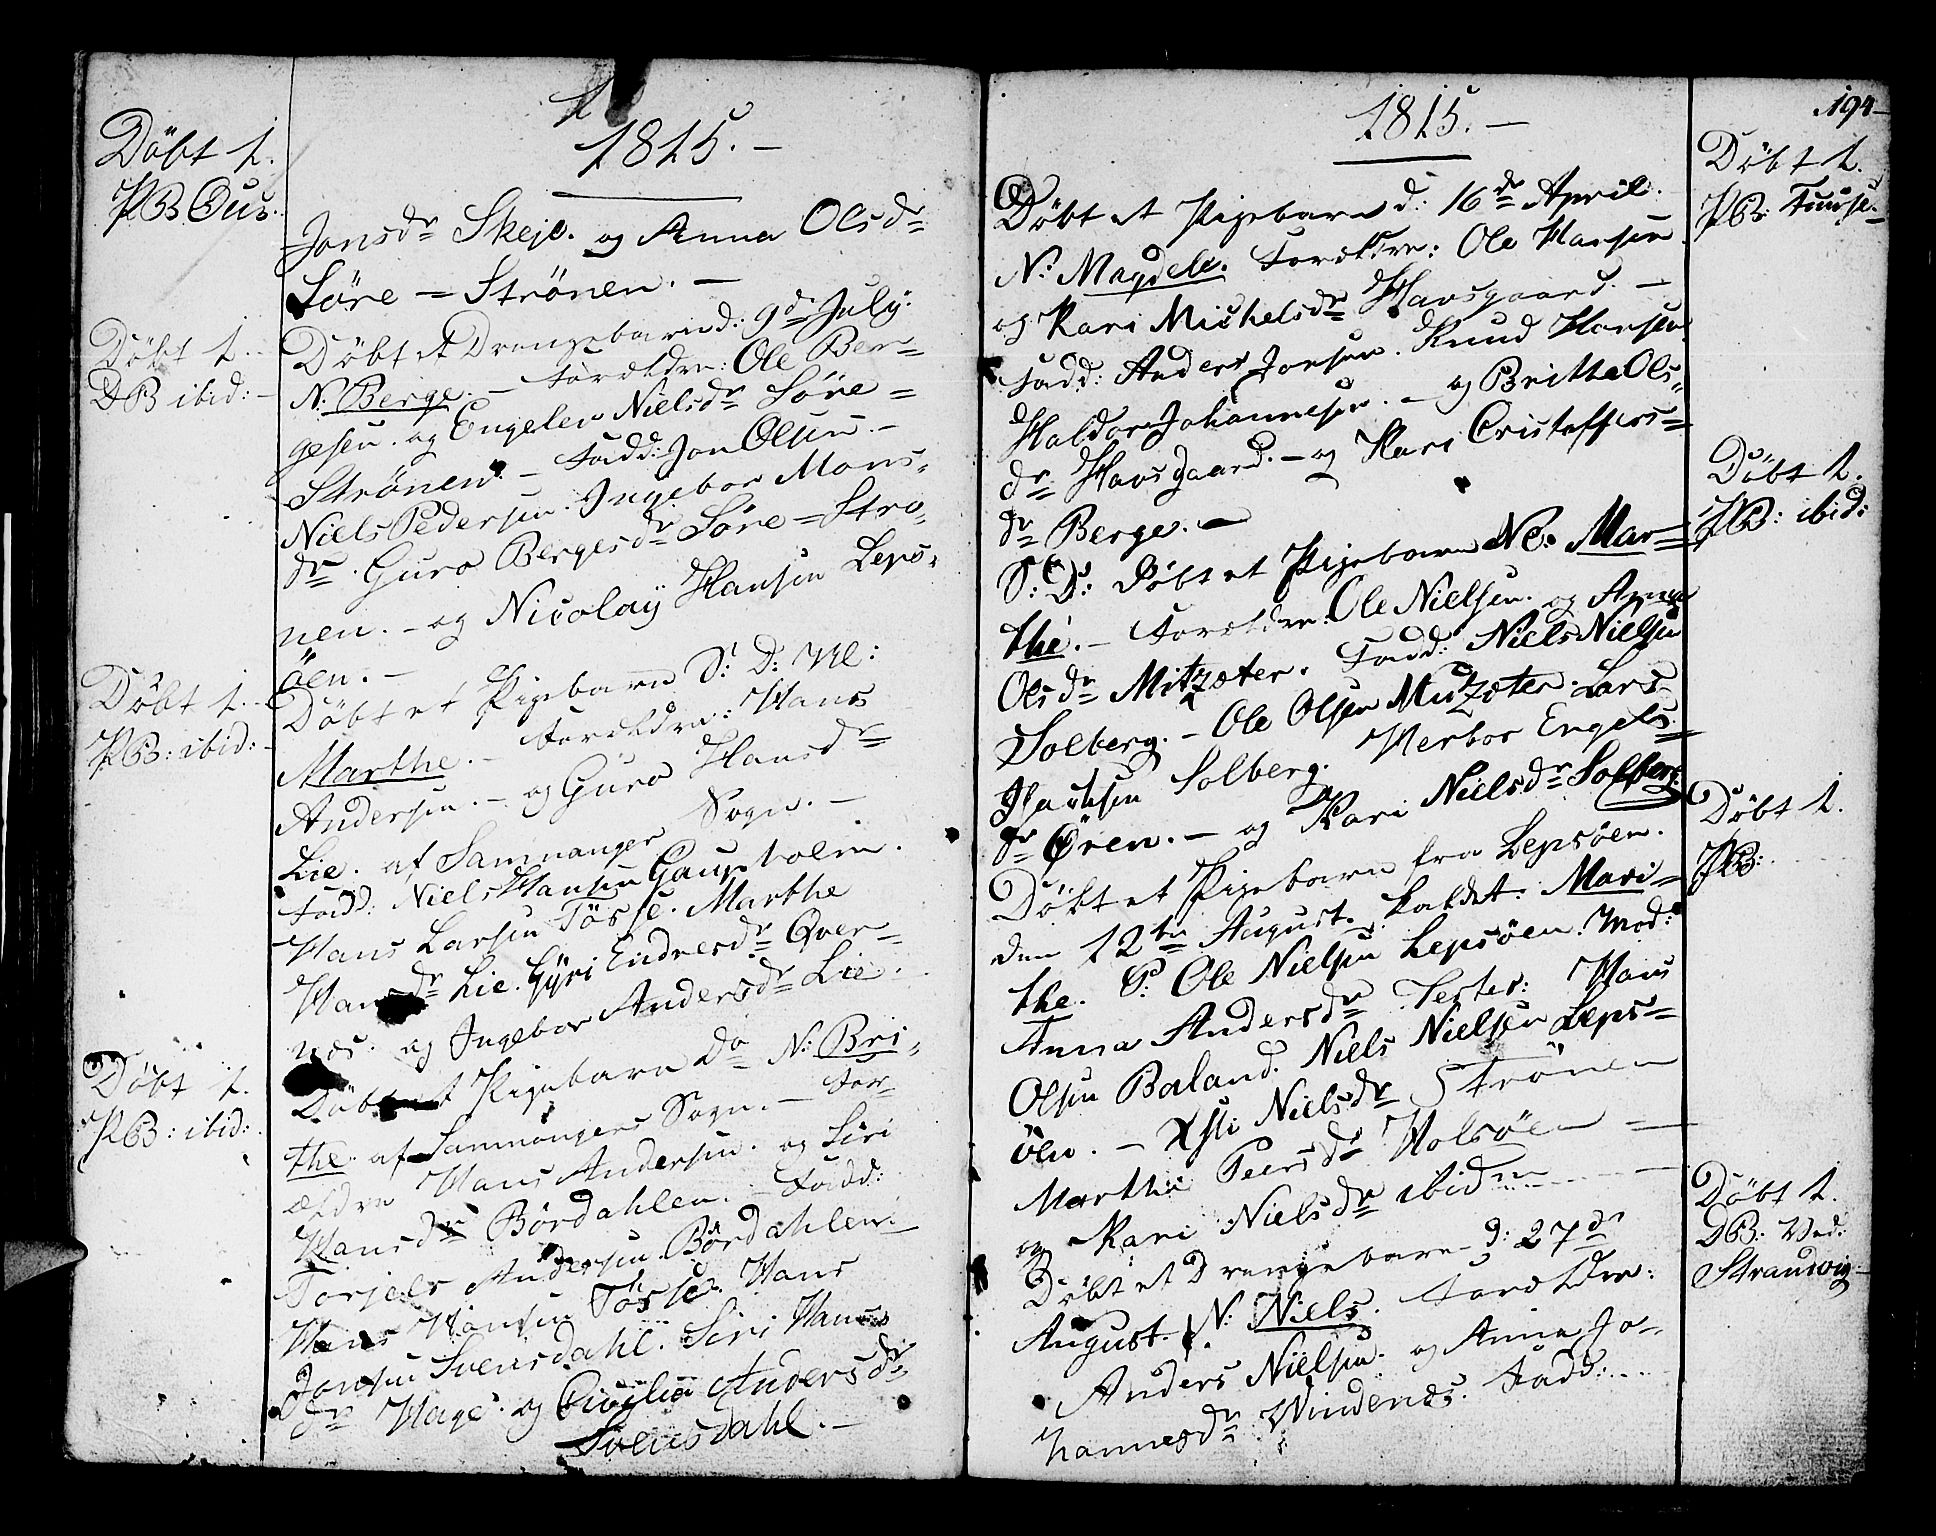 Döbt 1.
PB Ous.
Döbt 1.
DB ibid:
Döbt 1.
PB: ibid:
Döbt 1.
PB: ibid:
1815.
Jonsdr Skeje. og Anna Olsdr
Söre=Strönen.
Döbt et Drengebarn d: 9de July.
N: Berge. Forældre: Ole Ber=
gesen. og Engelev Nielsdr Söre=
Strönen. Fadd: Jon Olsen.
Niels Pedersen. Ingebor Mons
dr. Guro Bergesdr Söre=Strö
nen. og Nicolaÿ Hansen Leps
öen.
Döbt et Pigebarn S: D: N:
Marthe. Forældre: Hans
Andersen. og Guro Hansdr
Lie. af Samnanger Sogn.
Fadd: Niels Hansen Gaupholm.
Hans Larsen Tösse. Marthe
Hansdr Lie. Gÿri Endresdr Qver=
næs. og Ingebor Andersdr Lie.
Döbt et Pigebarn Do N: Bri
the. af Samnangers Sogn. For
ældre Hans Andersen. og Siri
Hansdr Bördahlen. Fadd:
Torjels Andersen Bördahlen
Hans Hansen Tösse. Hans
Jonsen Svensdahl. Siri Hans
dr Hage. og Andersdr
Svensdahl.
194
1815.
Döbt et Pigebarn d: 16de April.
N: Magdele. Forældre: Ole Hansen
og Kari Michelsdr Havsgaard.
Fadd: Anders Jonsen. Knud Hansen
Haldor Johannesen. og Britha Ols
dr Havsgaard. og Kari Cristoffers=
dr Berge.
S: D: Döbt et Pigebarn N: Mar=
the. Forældre: Ole Nielsen. og Anna
Olsdr Mitzæter. Fadd: Niels Nielsen
Solberg. Ole Olsen Mitzæter. Lars
Solberg. Herbor Engels
dr Ören. og Kari Nielsdr Solberg
Döbt et Pigebarn fra Lepsöen.
den 12te August. kaldet: Mari=
the. P: Ole Nielsen Lepsöen. Mod:
Anna Andersdr Testes: Hans
Olsen Baland. Niels Nielsen Leps=
öen. Xsti Nielsdr Strönen
Martha Peersdr Holsöen
og Kari Nielsdr ibidm
Döbt et Drengebarn d: 27de
August. N: Niels. Forældre:
Anders Nielsen. og Anna Jo
hannesdr Windenæs. Fadd:
Döbt 1.
PB: Fuuse.
Döbt 1.
PB: ibid:
Döbt 1.
PB:
Döbt 1.
DB: Ved:
Strandvig